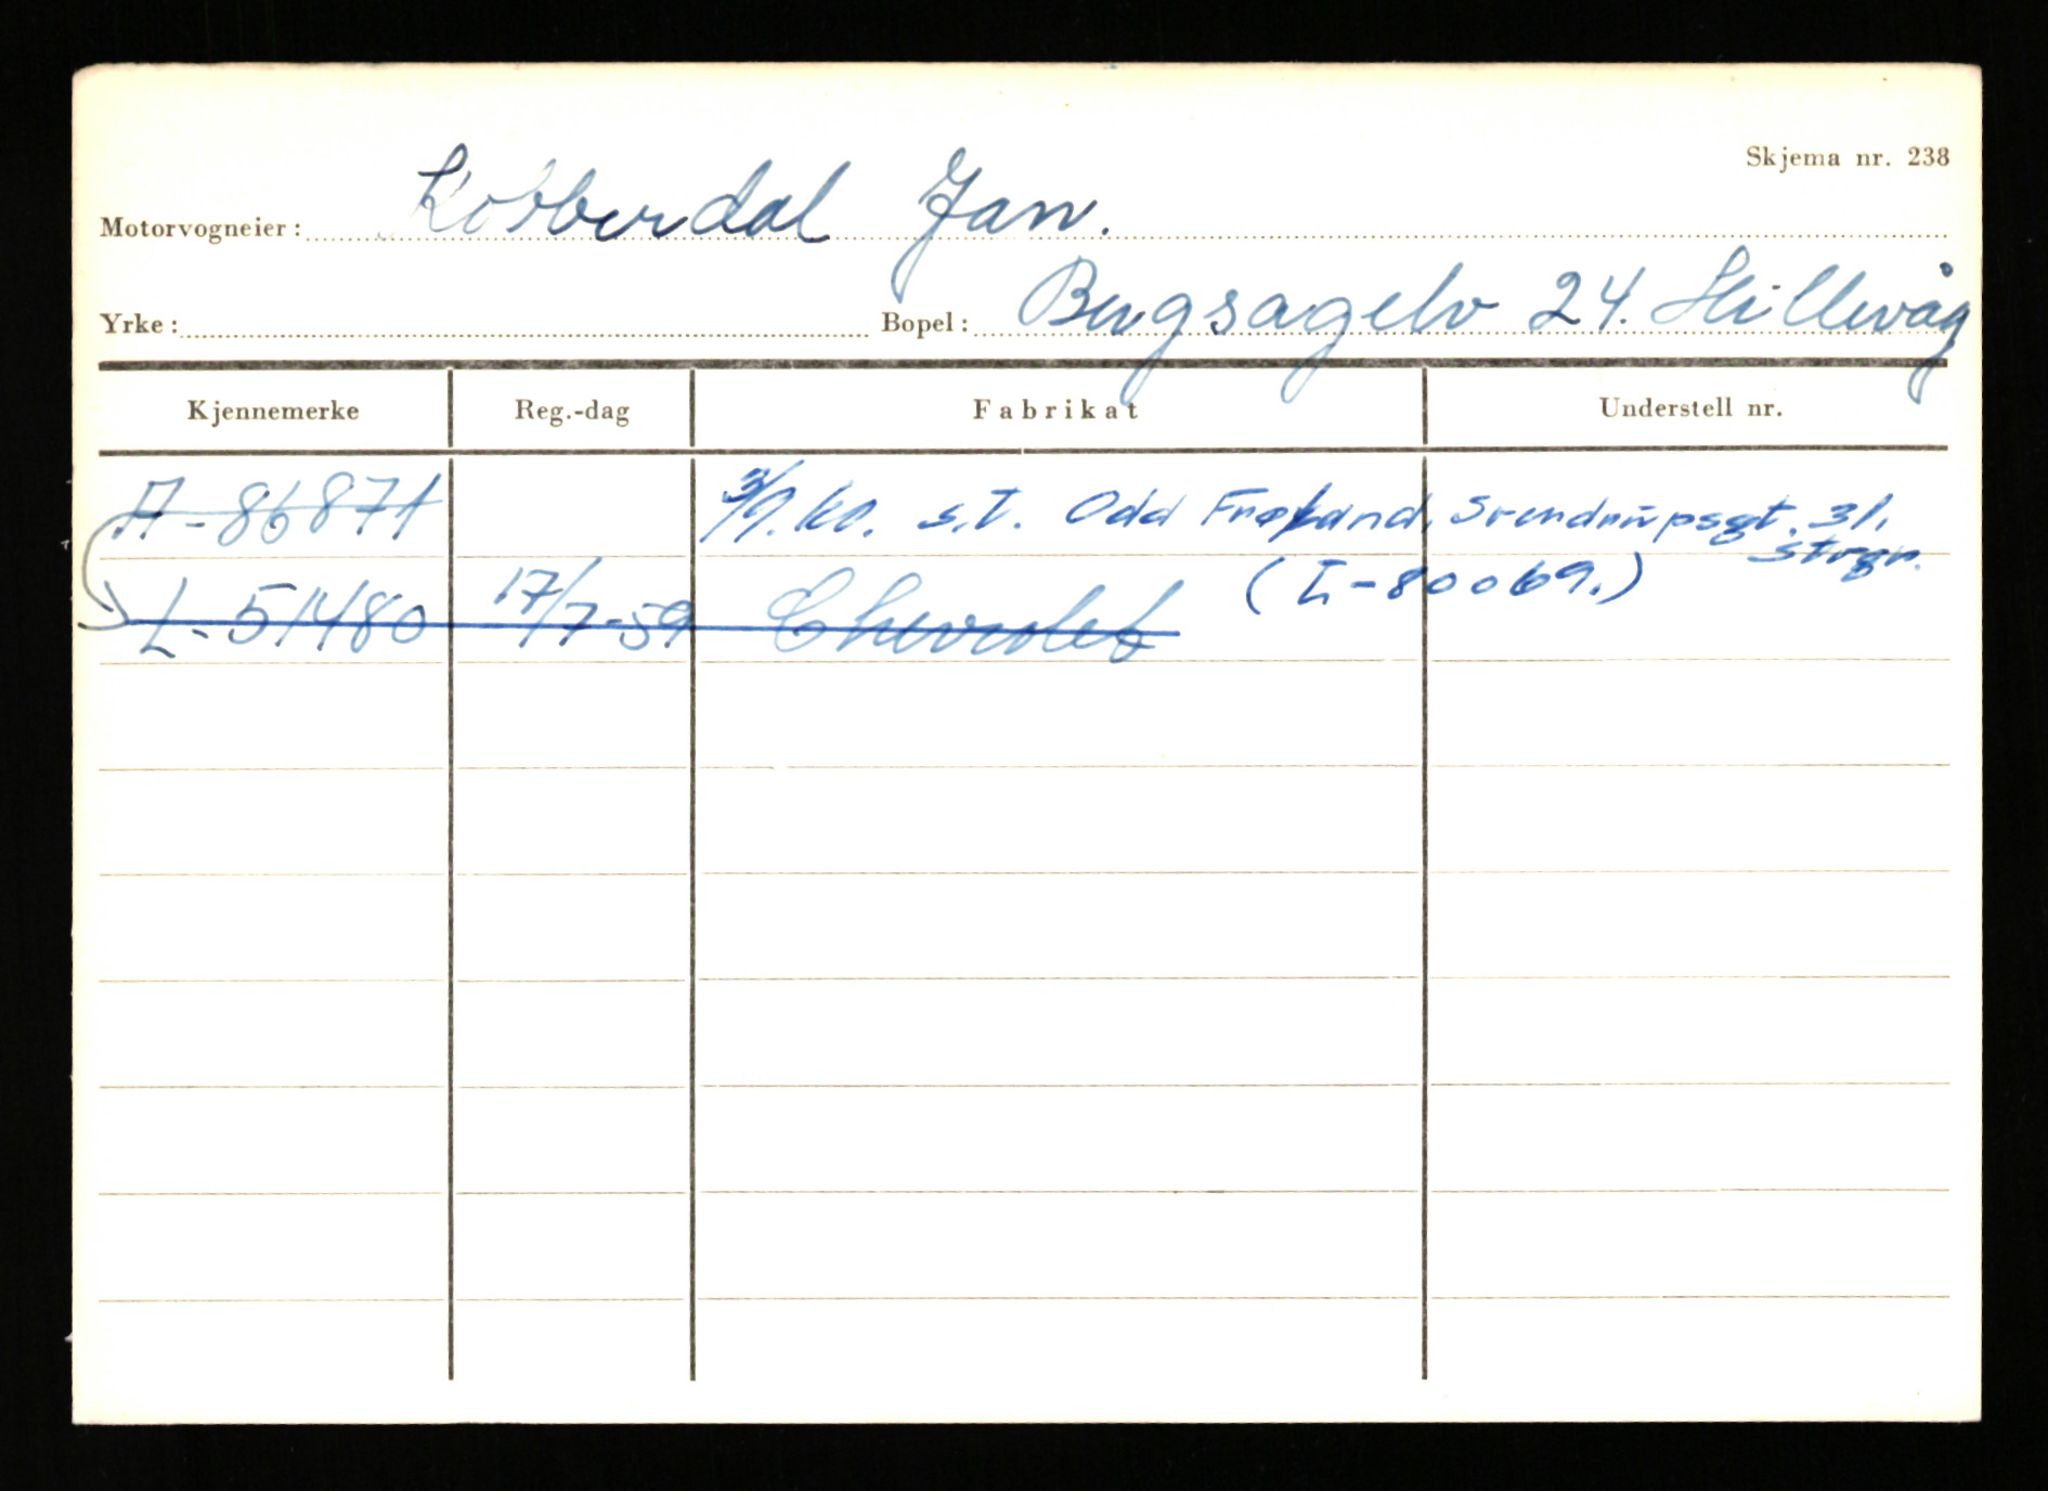 Skjema nr. 238
Motorvogneier: Kobberdal Jan.
Yrke: Bopel: Bergsagelv 24. Hillevåg
Kjennemerke Reg.-dag Fabrikat Understell nr.
A-86871 3/9.60. s.T. Odd Frøland, Svendrupsgt. 31, Strgr.
(L-80069.)
L-51480 17/7-59 Chevrolet